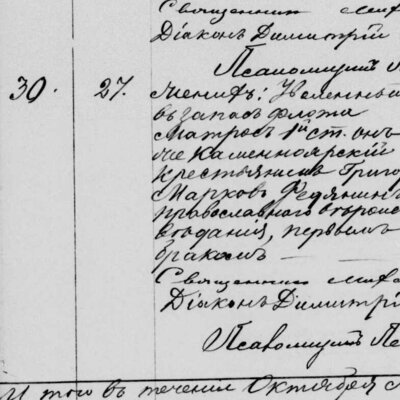 Священник Миха
Діаконъ Димитрій
Псаломщикъ
30. 27. Женихъ: Уволенный
въ запасъ флота
Матросъ 1й ст. онъ
же Каменноярскій
крестьянинъ Григор
Марковъ Федянинъ
православнаго вѣроис
вѣданія, первымъ
бракомъ
Священникъ Миха
Діаконъ Димитрі
Псаломщикъ Пе
Итого въ теченіи Октября